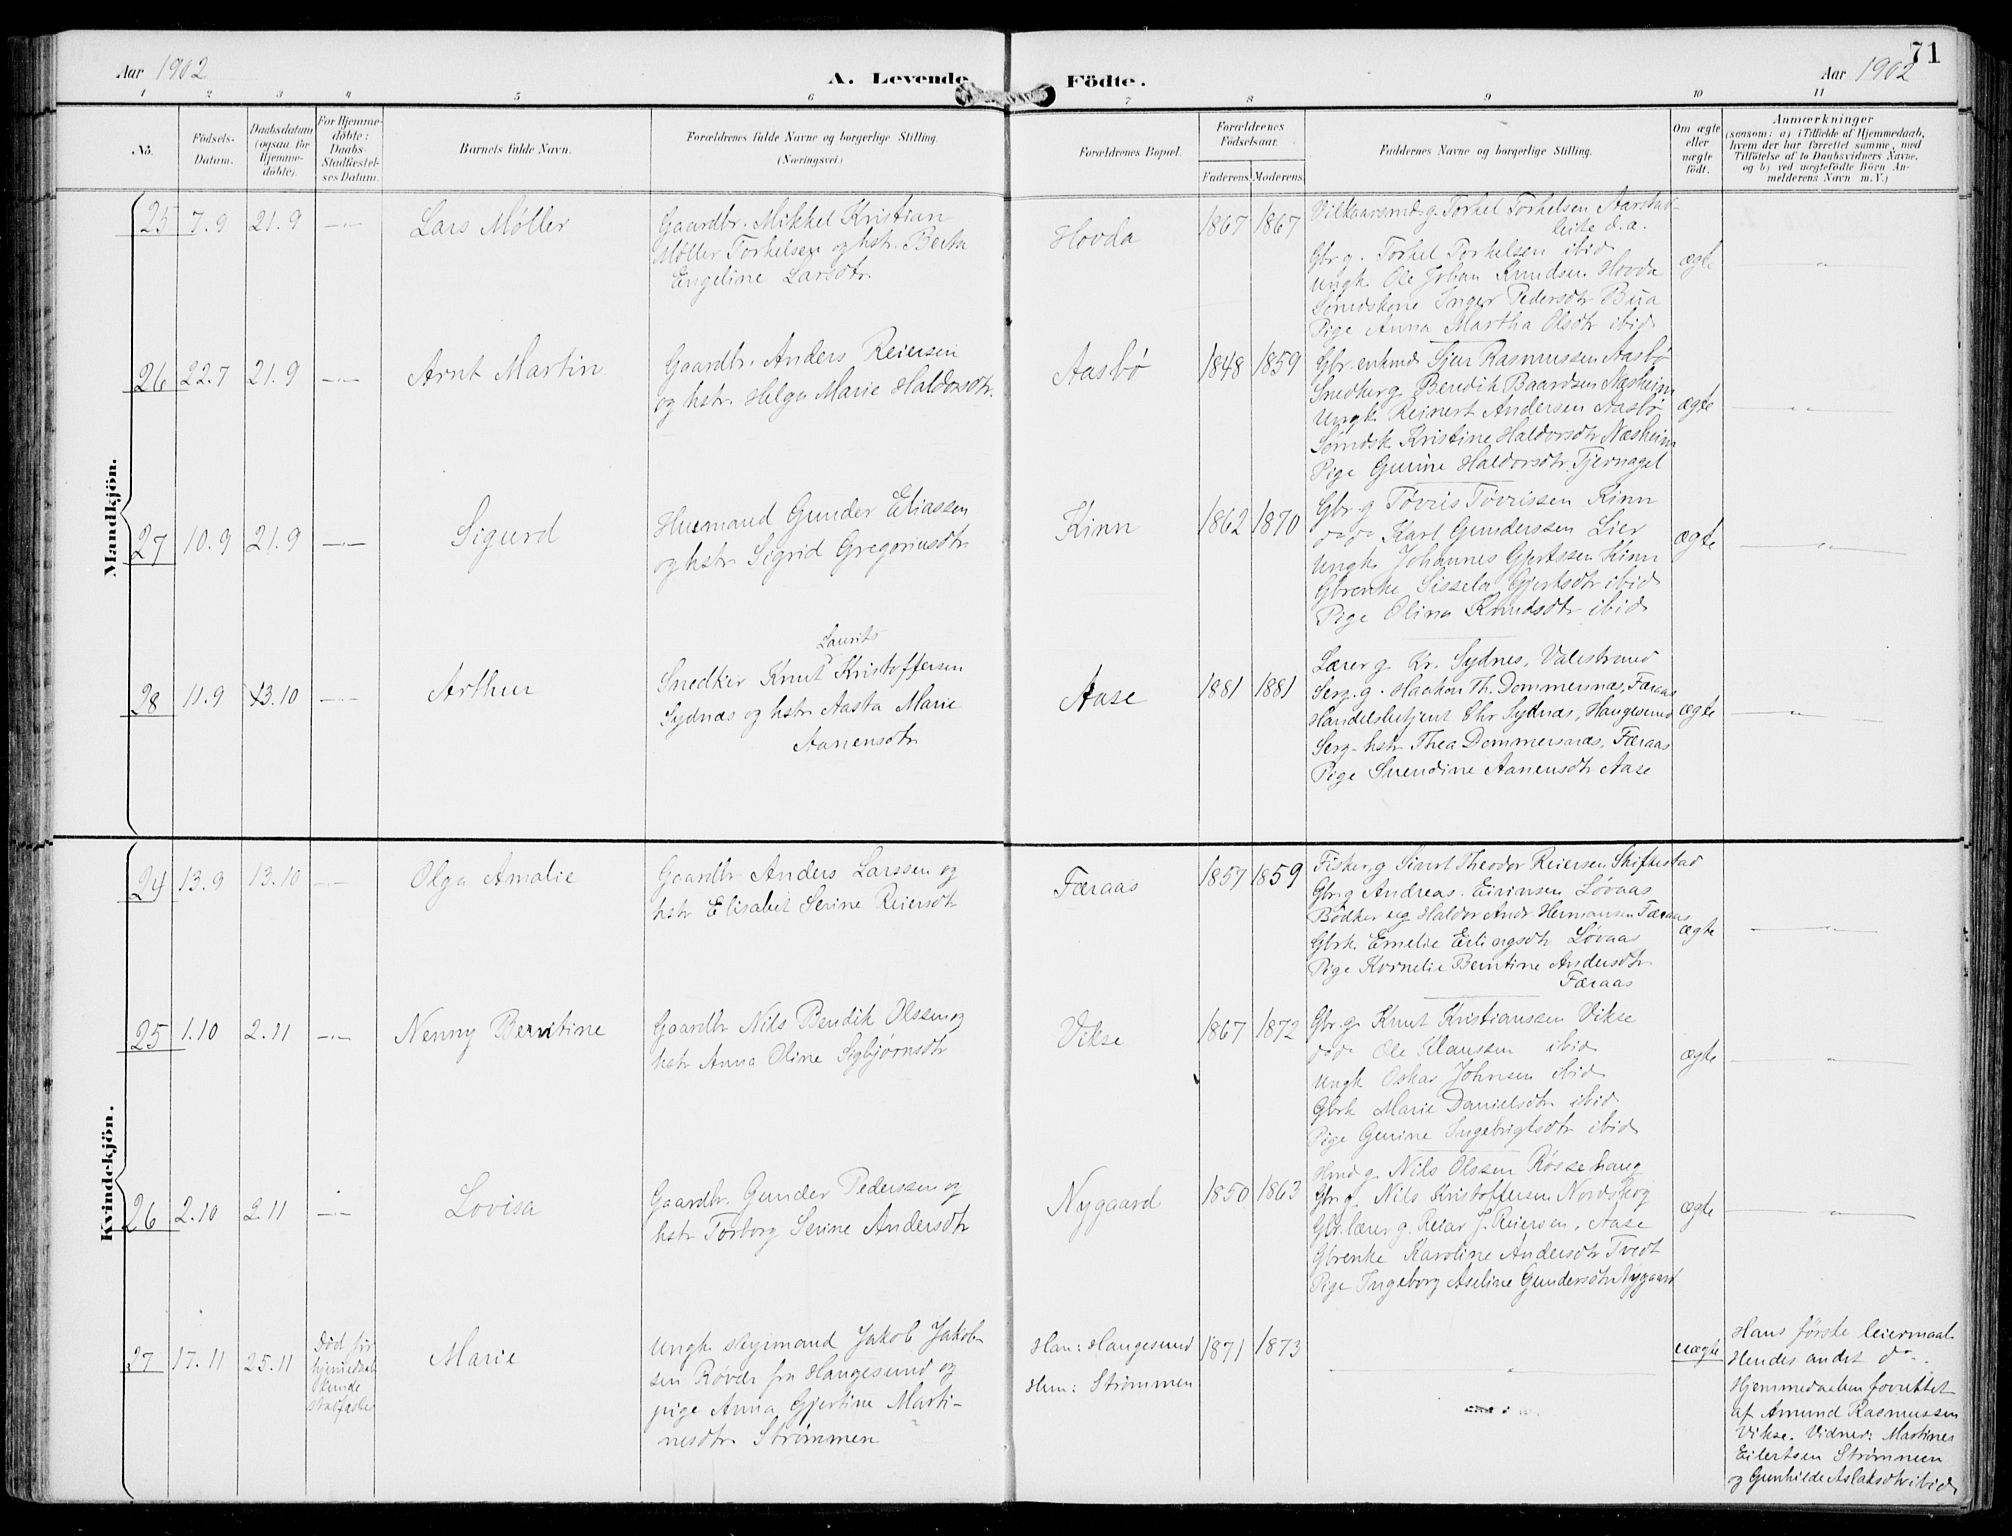 71
Aar 1902
A. Levende
Födte.
Aar 1902
1 2 3 4 5 6 7 8 9 10 11
No.
Födsels-
Datum.
Daabsdatum
(ogsaa for
Hjemme-
döbte).
For Hjemme-
döbte:
Daabs-
Stadfæstel-
ses Datum.
Barnets fulde Navn.
Forældrenes fulde Navne og borgerlige Stilling.
(Næringsvei.)
Forældrenes Bopæl.
Forældrenes
Födselsaar.
Faderens. Moderens.
Faddernes Navne og borgerlige Stilling.
Om ægte
eller
uægte
födt.
Anmærkninger
(saasom: a) i Tilfælde af Hjemmedaab,
hvem der har forrettet samme, med
Tilföielse af to Daabsvidners Navne,
og b) ved uægtefödte Börn An-
melderens Navn m. V.)
Mandkjön.
25 7.9 21.9 —"—
Lars Møller
Gaardbr. Mikkel Kristian
Møller Torkelsen og hstr. Berta
Engeline Larsdtr.
Hovda
1867 1867
Vilkaarsmd g. Torkel Torkelsen Aarstad-
leite d.a.
Gbr g. Torkel Torkelsen ibid
Ungk. Ole Johan Knudsen Hovda
Inger Pedersdtr Bua
Pige Anna Martha Olsdtr ibid
ægte
—"—
26 22.7 21.9 —"—
Arnt Martin
Gaardbr. Anders Reiersen
og hstr. Helga Marie Haldorsdtr.
Aasbø
1848 1859
Gbr. enkmd. Sjur Rasmussen Aasbø
Snedker g. Bendik Baardsen Næsheim
Ungk. Reinert Andersen Aasbø
Kristine Haldorsdtr Næsheim
Pige Gurine Haldorsdtr. Tjernagel
ægte
—"—
27 10.9 21.9 —"—
Sigurd
Husmand Gunder Eliassen
og hstr. Sigrid Gregoriusdtr
Kinn
1862 1870
Gbr. g Tøvris Tøvrissen Kinn
do do Karl Gunderssen Lier
Ungk. Johannes Gjertssen Kinn
Gbrenke Sissela Gjertsdtr ibid
Pige Olina Knudsdtr ibid
ægte
—"—
28 11.9 13.10 —"—
Arthur
Laurits
Snedker Knut Kristoffersen
Sydnæs og hstr. Aasta Marie
Aanensdtr
Aase
1881 1881
Lærer g. Kr. Sydnes, Valestrand
Serg. g. Haakon Th. Dommersnæs, Færaas
Handelsbetjent Chr Sydnæs, Haugesund
Serg-hstr Thea Dommersnæs, Færaas
Pige Svendine Aanensdtr Aase
ægte
—"—
Kvindekjön.
24 13.9 13.10 —"—
Olga Amalie
Gaardbr Anders Larssen og
hstr Elisabet Serine Reiersdtr
Færaas
1857 1859
Fisker g Sivert Theodor Reiersen Skiftestad
Gbr. g Andreas Løvaas
Bødker ug Haldor Andr. Hermansen Færaas
Gbrk. Emelie Erlingsdtr Løvaas
Pige Kornelie Berntine Andersdtr
Færaas
ægte
—"—
25 1.10 2.11 —"—
Nenny Berntine
Gaardbr Nils Bendik Olssen og
hstr Anna Oline Sigbjørnsdtr
Vikse
1867 1872
Gbr. g. Knut Kristianssen Vikse
do do Ole Klaussen ibid
Ungk Oskar Johnsen ibid
Gbrk Marie Danielsdtr ibid
Pige Gurine Ingebrigtsdtr ibid
ægte
—"—
26 2.10 2.11 —"—
Lovisa
Gaardbr. Gunder Pederssen og
hstr Torborg Serine Andersdtr
Nygaard
1850 1863
Hmd g. Nils Olssen Røssehaug
Gbr. g. Nils Kristoffersen Nordskog
Gbr. lærer g. Reiar J. Reiersen, Aase
Gbrenke Karoline Andersdtr Tvedt
Pige Ingeborg Aseline Gundersdtr Nygaard
ægte
—"—
27 17.11 25.11
Død før
hjemmedaab
kunde
stadfæstes
Marie
Ungk. Jakob Jakob-
sen Røvær fra Haugesund og
pige Anna Gjertine Marti-
nesdtr. Strømmen
Han: Haugesund
Hun: Strømmen
1871 1873
—"—
uægte
Hans første leiermaal
Hendes andet do.
Hjemmedaaben forrettet
af Amund Rasmussen
Vikse. Vidner: Martines
Eilertsen Strømmen
og Gunhilde Aslaksdtr ibid